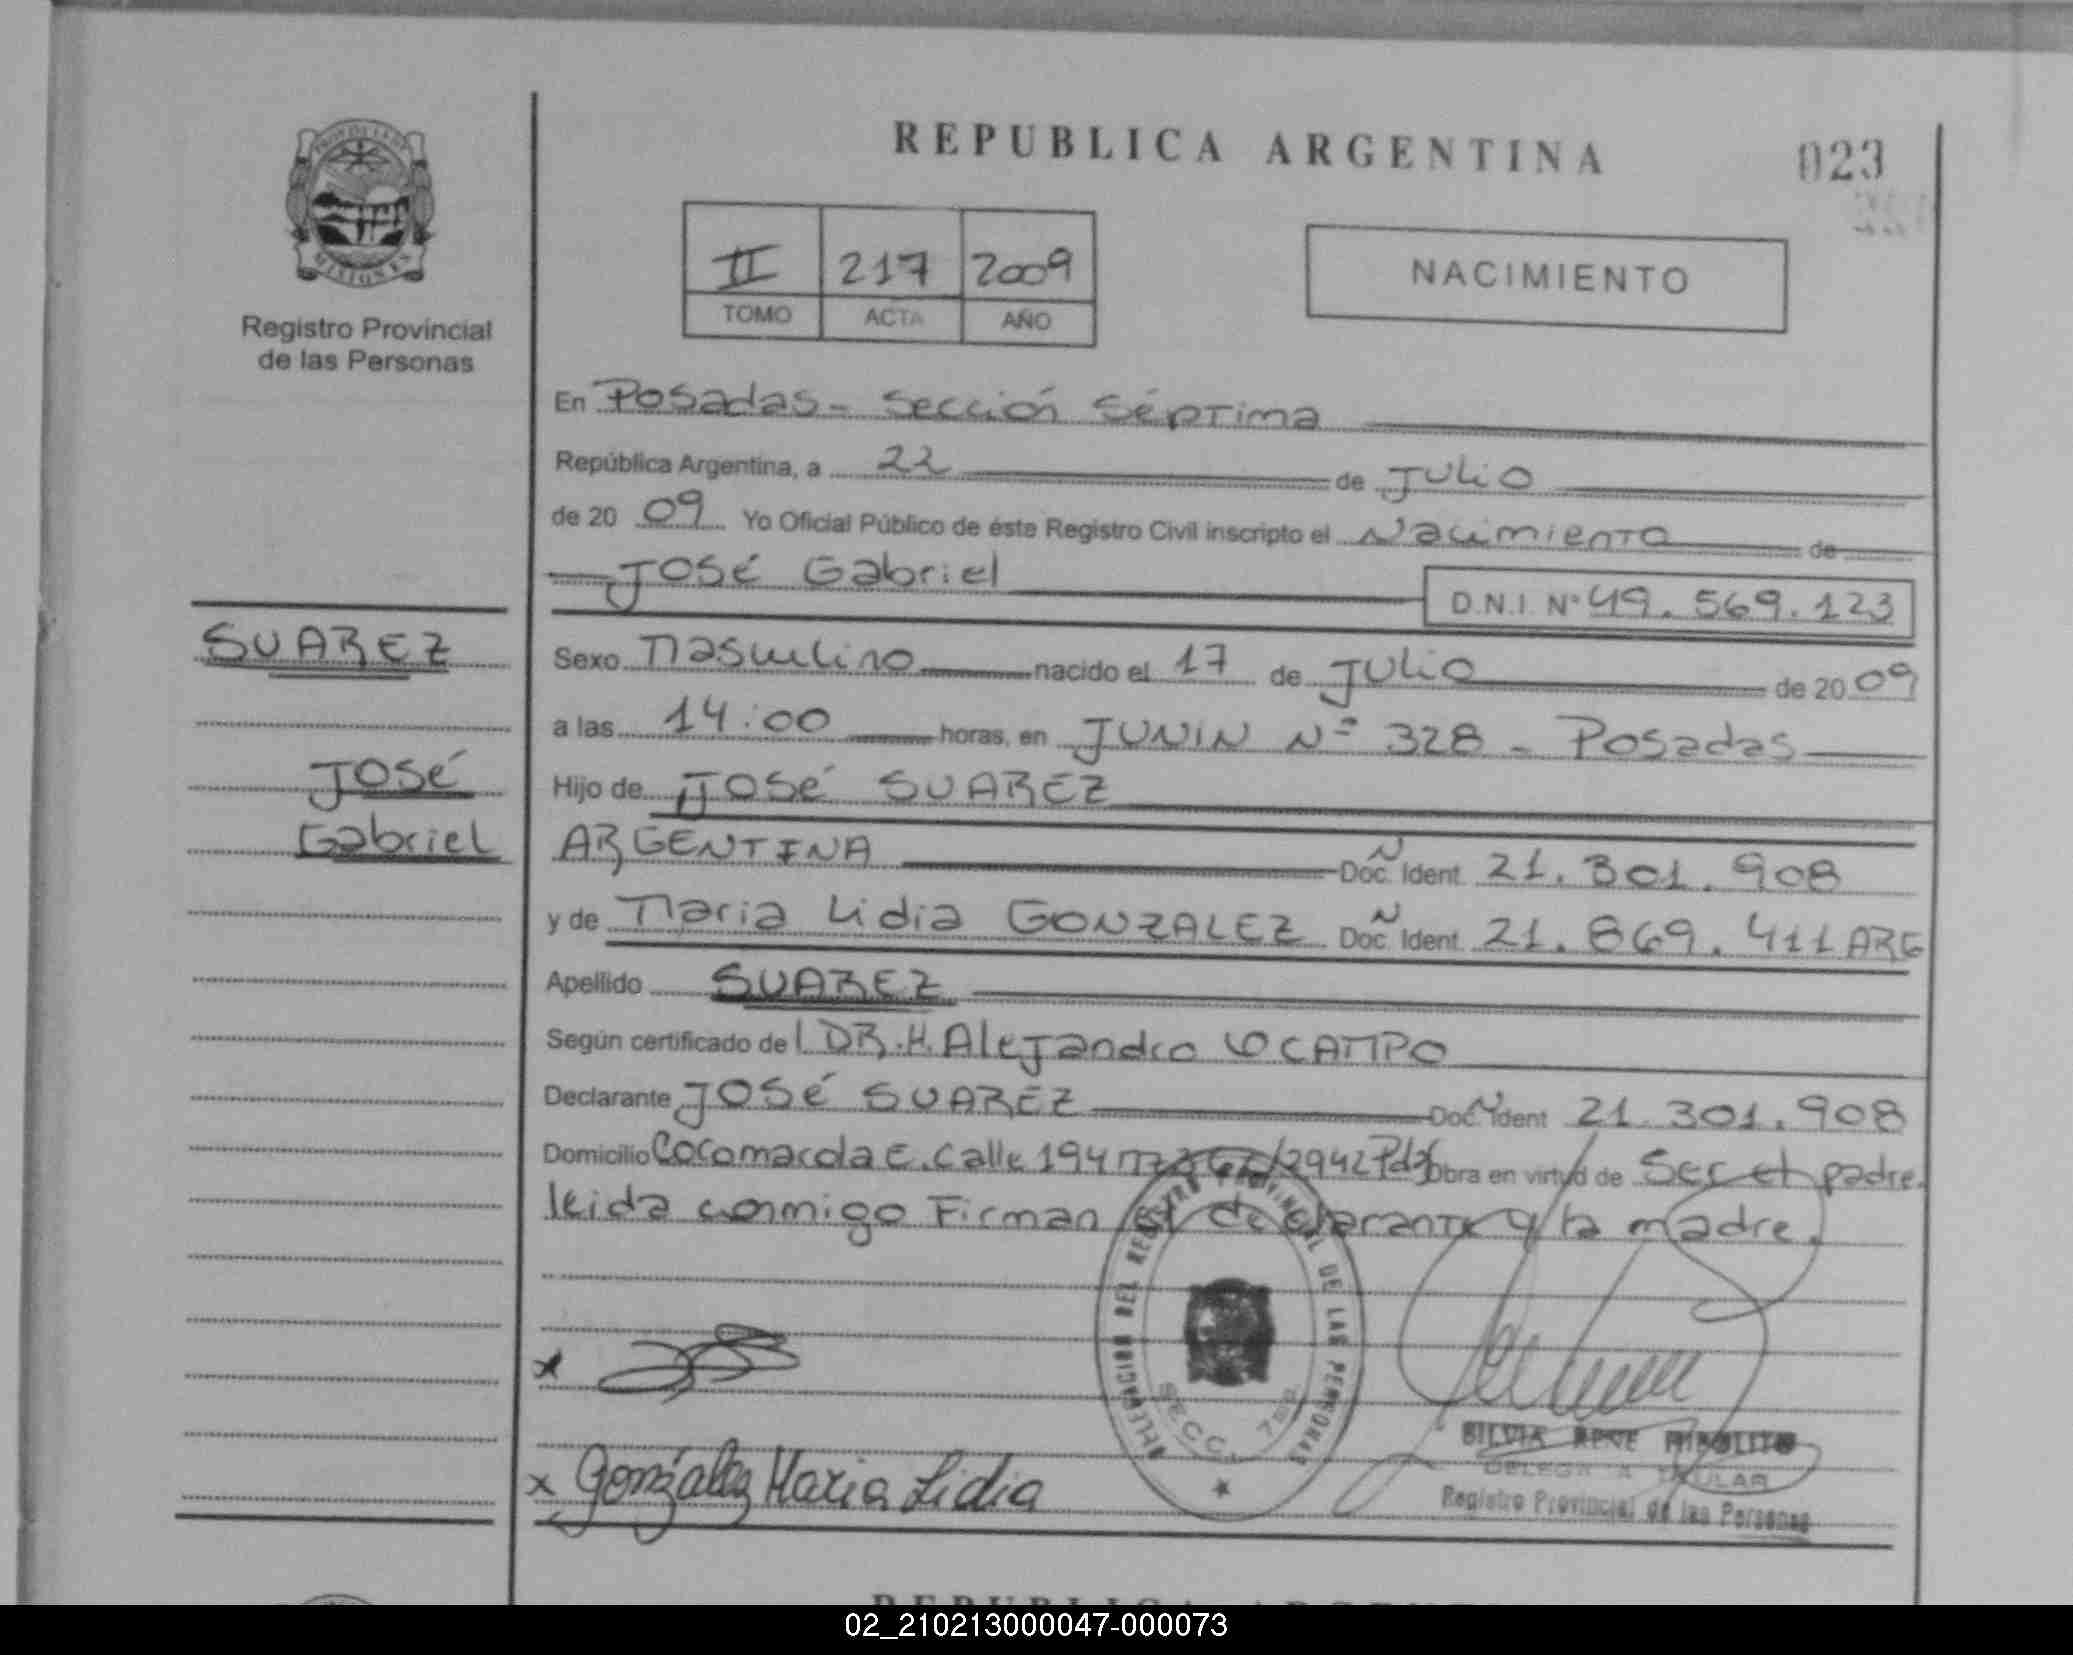 REPUBLICA ARGENTINA
023
PROVINCIA DE
MISIONES
Registro Provincial
de las Personas
II 217 2009
TOMO ACTA AÑO
NACIMIENTO
En Posadas - Sección Séptima
República Argentina, a 22 de Julio
de 20 09 Yo Oficial Público de éste Registro Civil inscripto el Nacimiento de
José Gabriel
D.N.I. Nº 49.569.123
SUAREZ
José
Gabriel
Sexo Masculino nacido el 17 de Julio de 20 09
a las 14:00 horas, en JUNIN Nº 328 - Posadas
Hijo de José SUAREZ
ARGENTINA Doc. Ident. 21.301.908
y de Maria Lidia GONZALEZ Doc. Ident. 21.869.411 ARG
Apellido SUAREZ
Según certificado del DR. H. Alejandro OCAMPO
Declarante José SUAREZ Doc. Ident 21.301.908
Domicilio Cocomarola E. Calle 194 2942 Pdas Obra en virtud de Ser el padre.
leida conmigo Firman el declarante y la madre.
DELEGACION DEL REGISTRO PROVINCIAL DE LAS PERSONAS
SECC. 7ma
x
x González Maria Lidia
SILVIA RENE HIPOLITO
DELEGADA TITULAR
Registro Provincial de las Personas
REPUBLICA ARGENTINA
02_210213000047-000073